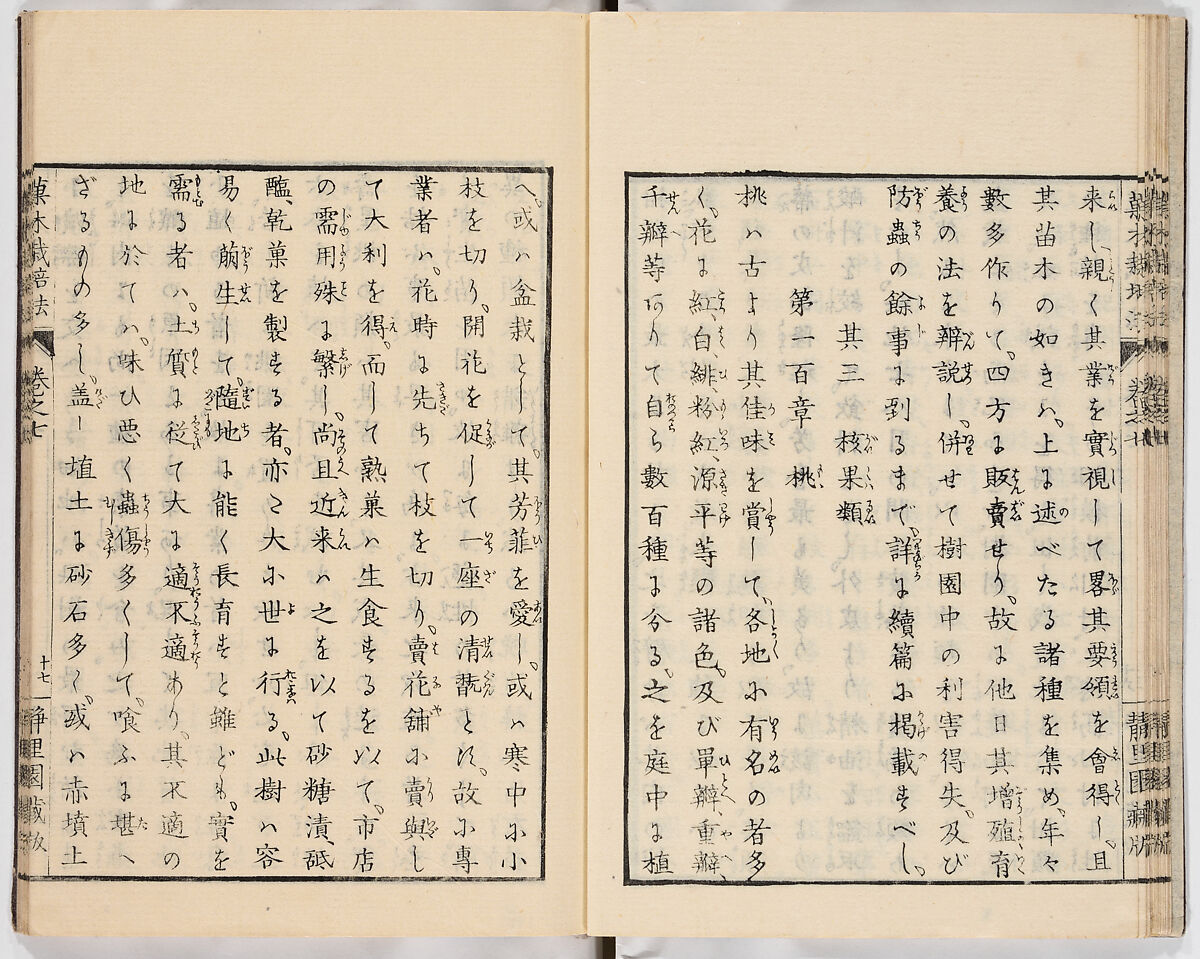 菓木栽培法　巻之七　静里園藏版
来し親く其業を實視して畧其要領を會得し、且
其苗木の如きハ、上に述べたる諸種を集め、年々
數多作りて、四方に販賣せり、故に他日其增殖育
養の法を辯説し、併せて樹園中の利害得失、及び
防蟲の餘事に到るまで、詳に續篇に掲載すべし、
其三　核果類
第一百章　桃
桃ハ古より其佳味を賞して、各地に有名の者多
く、花に紅、白、緋、粉紅、源平等の諸色、及び單瓣、重瓣、
千瓣等ありて自ら數百種に分る、之を庭中に植
へ、或ハ盆栽として、其芳菲を愛し、或ハ寒中に小
枝を切り、開花を促して一座の清翫とす、故に專
業者ハ、花時に先ちて枝を切り、賣花舖に賣與し
て大利を得、而して熟菓ハ生食するを以て、市店
の需用殊に繁し、尚且近来ハ之を以て砂糖漬、砥
醢、乾菓を製する者、亦々大に世に行る、此樹ハ容
易く萠生して、隨地に能く長育すと雖ども、實を
需る者ハ、土質に従て大に適不適あり、其不適の
地に於てハ、味ひ悪く蟲傷多くして、喰ふに堪へ
ざるもの多し、盖し埴土に砂石多く、或ハ赤墳土
菓木栽培法　巻之七　十七　静里園藏版